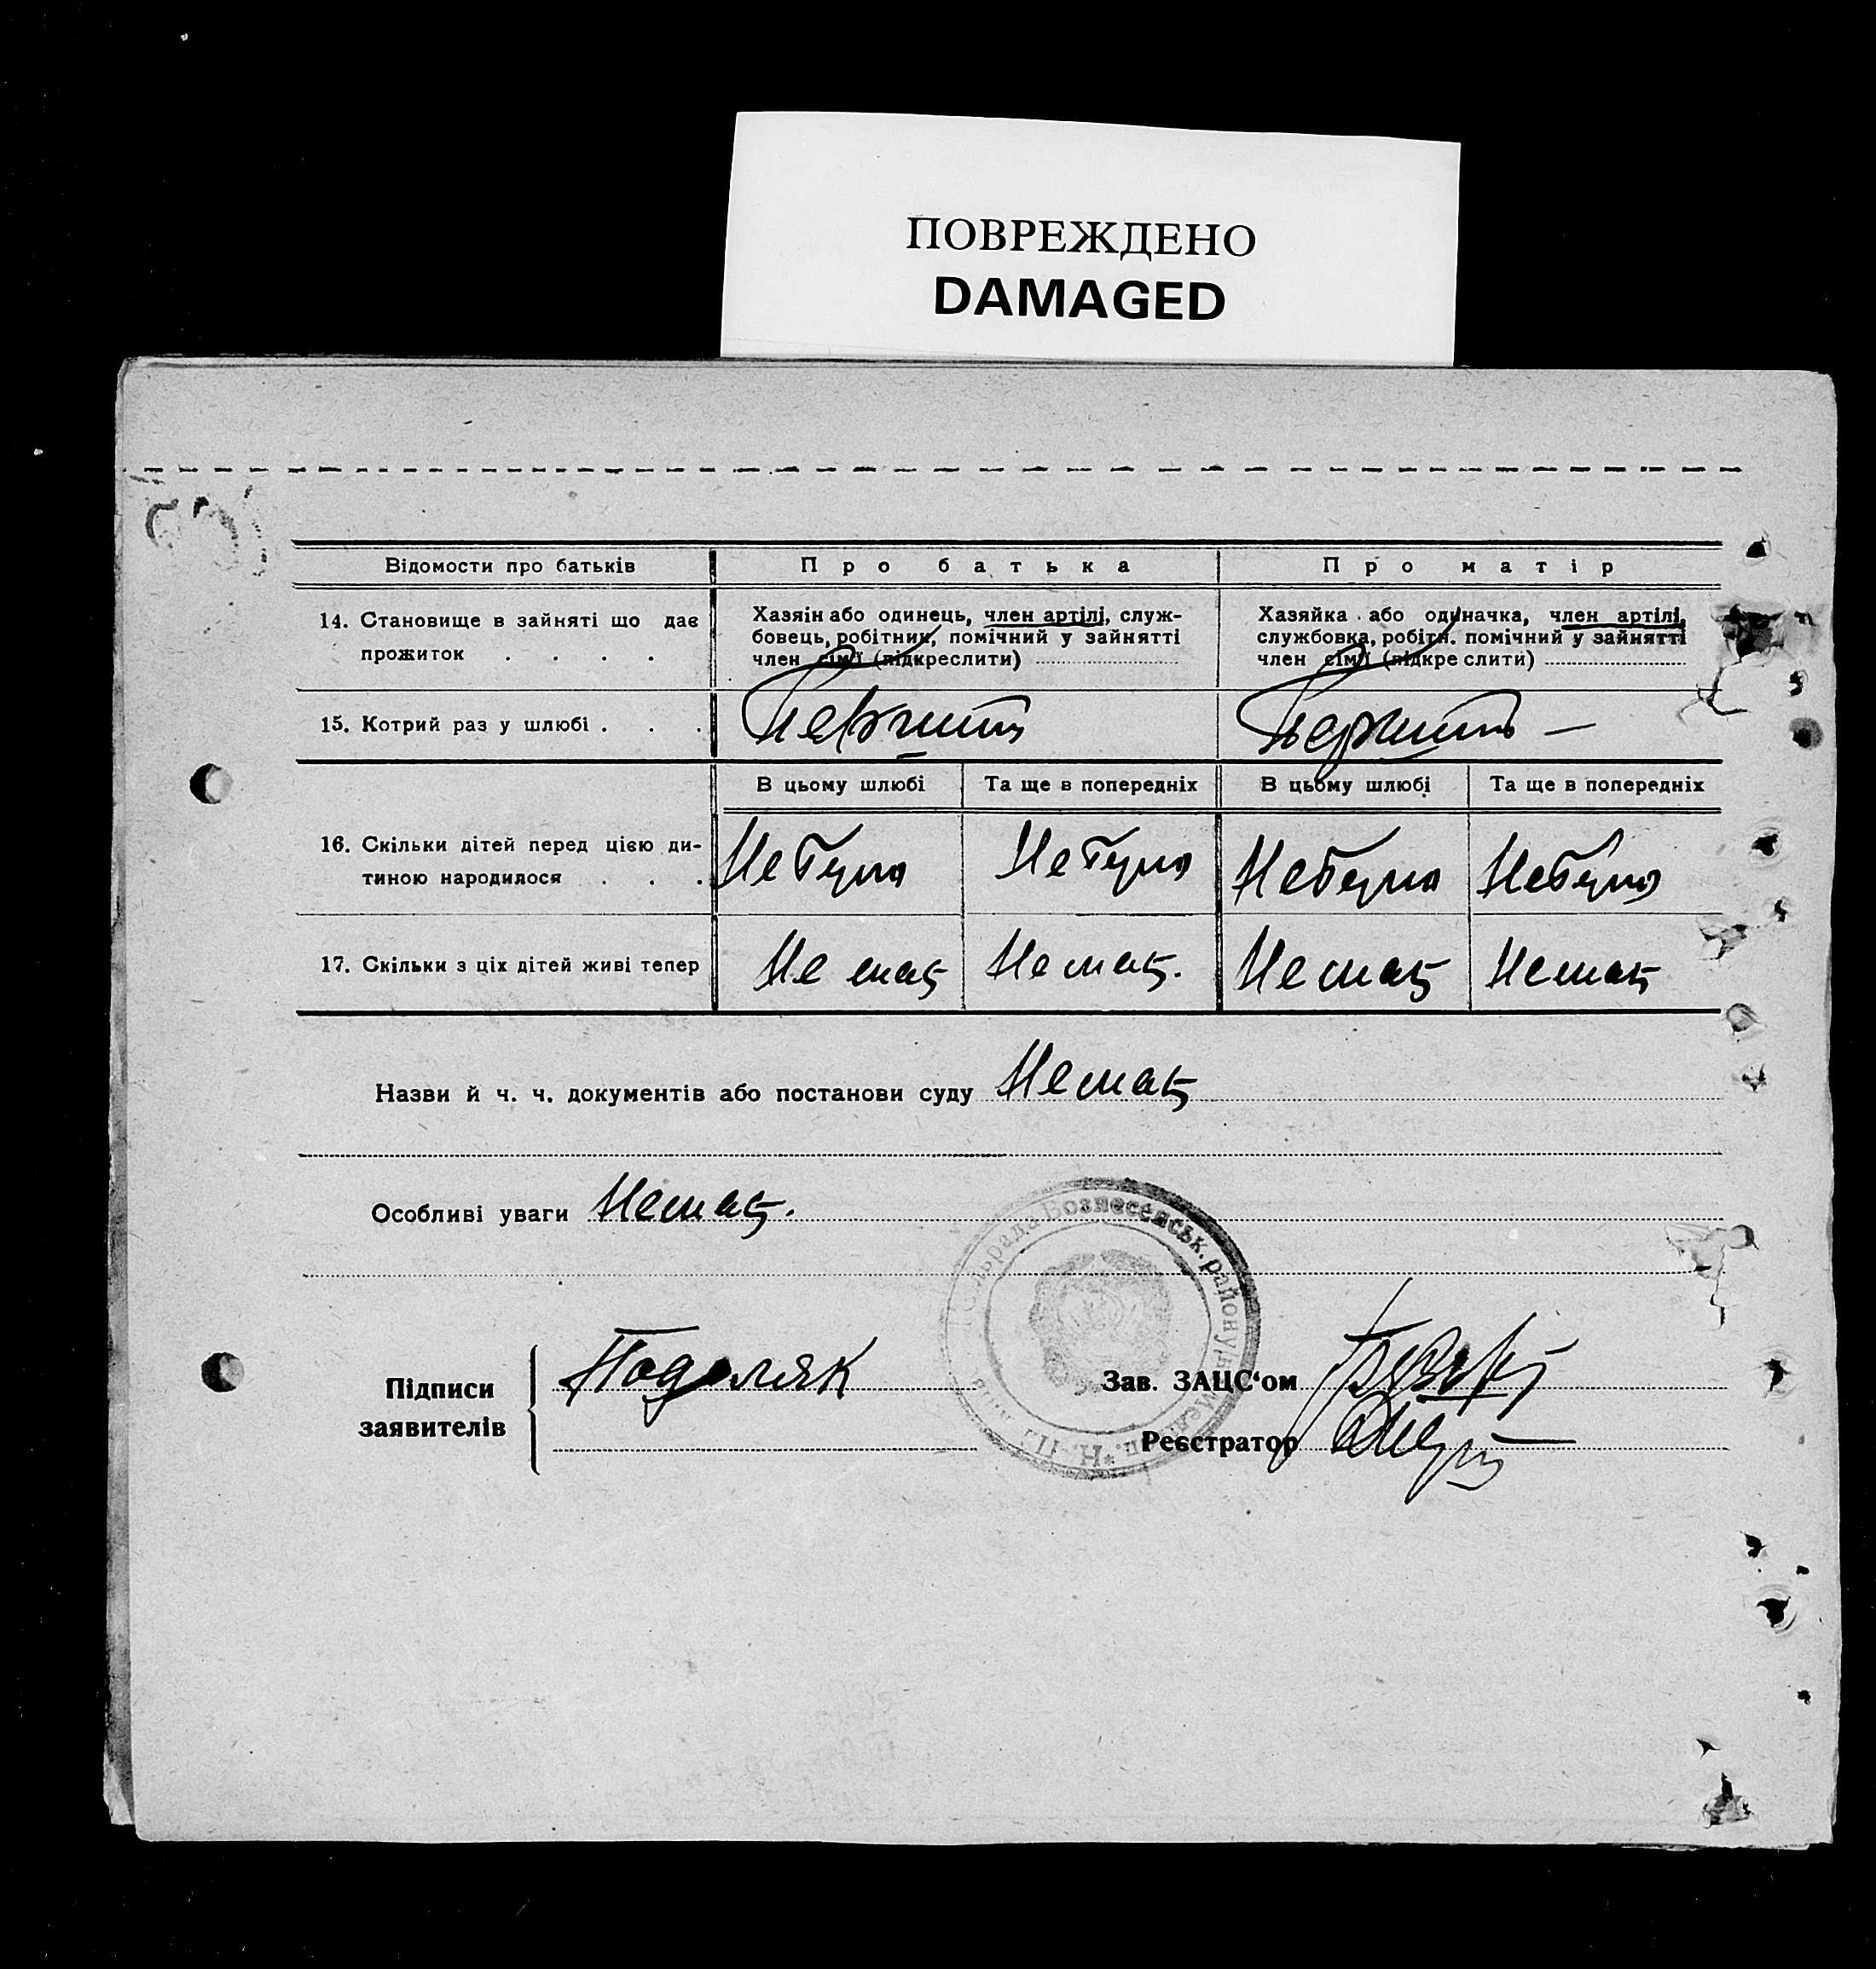 ПОВРЕЖДЕНО
DAMAGED
Відомости про батьків
Про батька
Про матір
14. Становище в зайняті що дає
прожиток . . . .
Хазяін або одинець, член артілі, служ-
бовець, робітник, помічний у зайнятті
член сімї (підкреслити)
Хазяйка або одиначка, член артілі,
службовка, робітн. помічний у зайнятті
член сімї (підкреслити)
15. Котрий раз у шлюбі . . .
Первший
Первший —
В цьому шлюбі
Та ще в попередніх
В цьому шлюбі
Та ще в попередніх
16. Скільки дітей перед цією ди-
тиною народилося . . .
Не було
Не було
Небуло
Небуло
17. Скільки з ціх дітей живі тепер
Не має
Не має.
Немає
Немає
Назви й ч. ч. документів або постанови суду Немає
Особливі уваги Немає.
льрада Вознесенськ. району
Підписи
заявителів
Подоляк
Зав. ЗАЦС'ом
Реєстратор